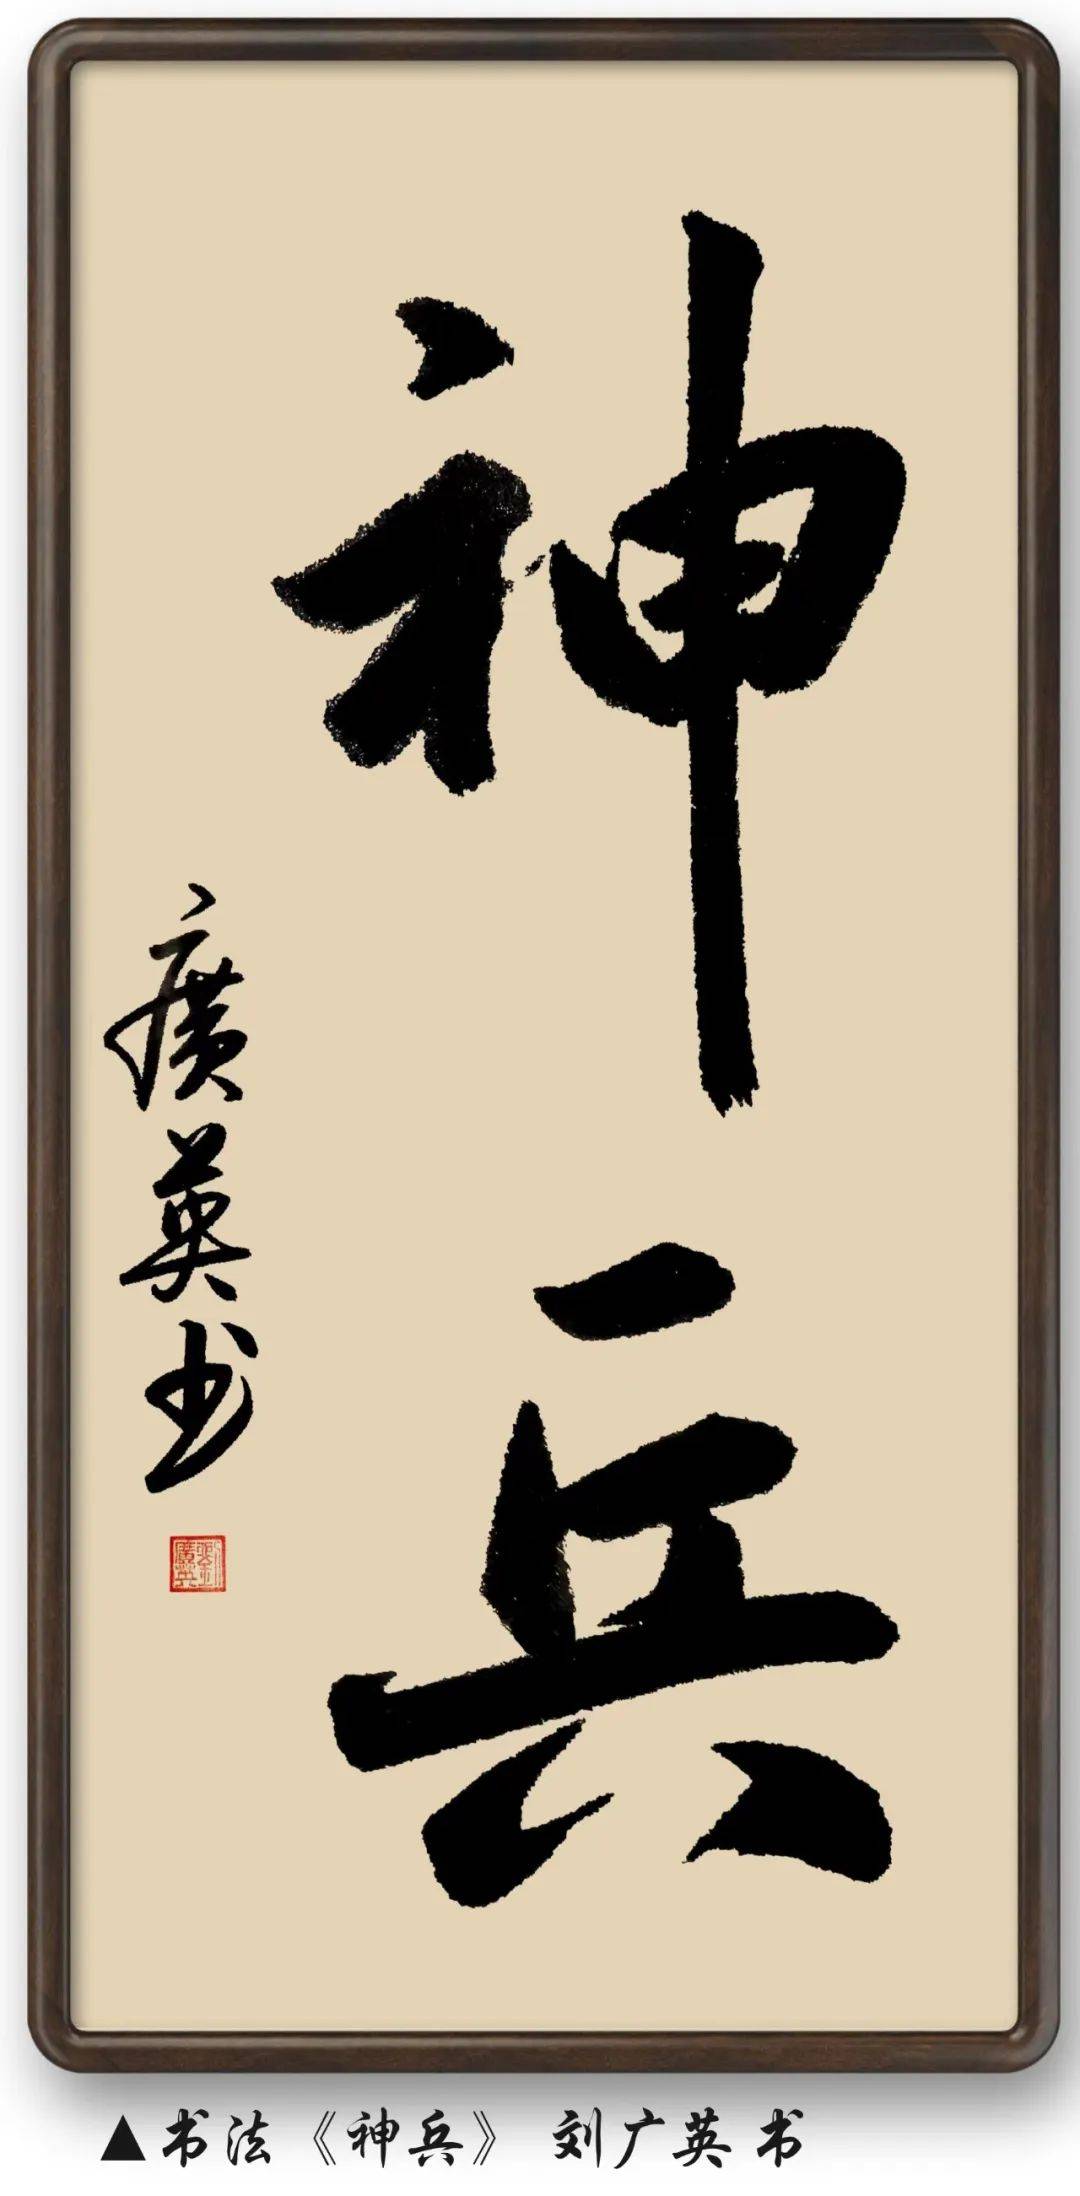 神兵
廣英书
劉廣英
▲书法《神兵》 刘广英 书